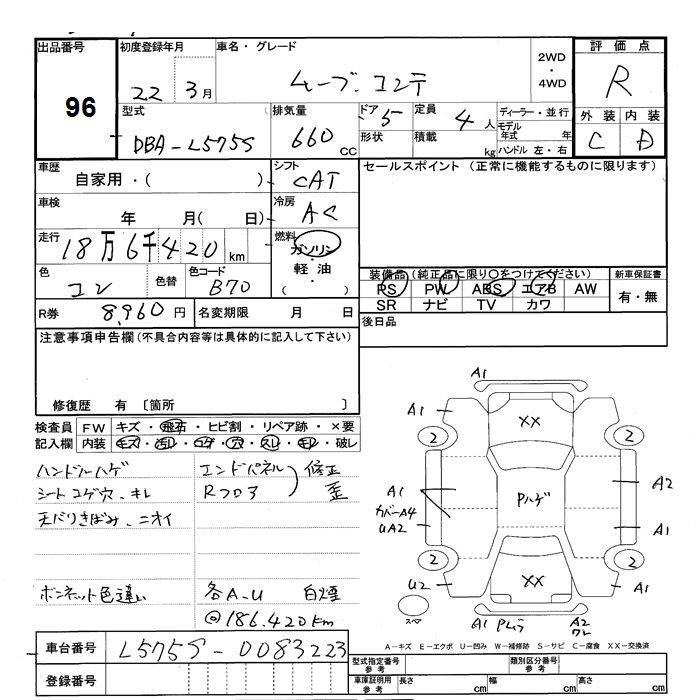 出品番号
96
初度登録年月
22 3月
車名・グレード
ムーブ.コンテ
2WD
・
4WD
評価点
R
型式
DBA-L575S
排気量
660 CC
ドア 5
形状
定員
4 人
積載 kg
ディーラー・並行
モデル年式 年
ハンドル 左・右
外装 内装
C D
車歴
自家用・( )
シフト
CAT
セールスポイント (正常に機能するものに限ります)
車検
年 月( 日)
冷房
AC
走行
18万6千420 km
燃料
ガソリン
・
軽油
( )
色
コン
色替
色コード
B70
装備品(純正品に限り○をつけてください)
PS PW ABS エアB AW
SR ナビ TV カワ
新車保証書
有・無
R券 8,960円
名変期限 月 日
後日品
注意事項申告欄(不具合内容等は具体的に記入して下さい)
修復歴 有 〔箇所 〕
検査員記入欄
FW キズ・飛石・ヒビ割・リペア跡・×要
内装 キズ・汚レ・コゲ・穴・スレ・キレ・破レ
ハンドルハゲ
シートコゲ穴.キレ
天バリきばみ.ニオイ
ボンネット色違い
エンドパネル
Rフロア
修正
歪
各A.U 白煙
@186.420Km
A1
A1
A1
XX
2
2
A1
カバーA4
UA2
Pハゲ
A2
A1
2
2
U2
XX
A1
スペア
A1
Pムラ
A2
ワレ
車台番号
L575S-0083223
登録番号
A-キズ E-エクボ U-凹み W-補修跡 S-サビ C-腐食 XX-交換済
型式指定番号
参考
類別区分番号
参考
車庫証明用
参考
長さ cm
幅 cm
高さ cm